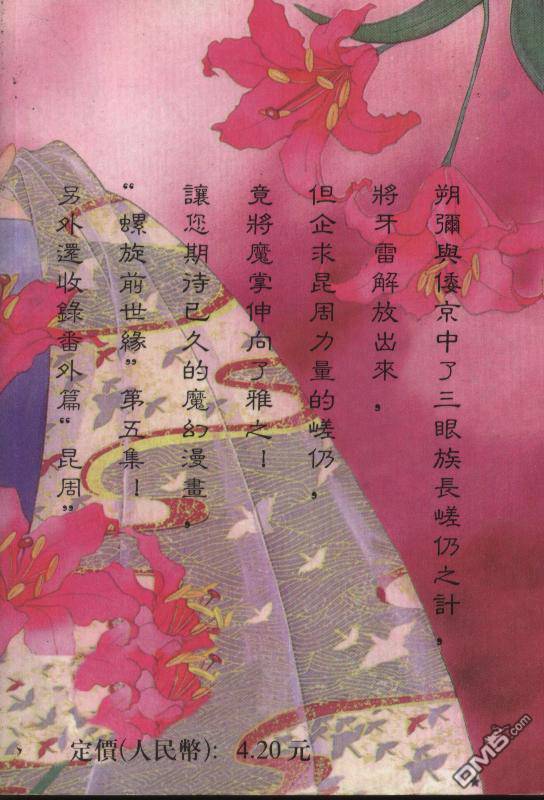 朔彌與倭京中了三眼族長嵯仍之計，
將牙雷解放出來，
但企求昆周力量的嵯仍，
竟將魔掌伸向了雅之！
讓您期待已久的魔幻漫畫，
“螺旋前世緣”第五集！
另外還收錄番外篇“昆周”
定價(人民幣): 4.20元
DM5.com